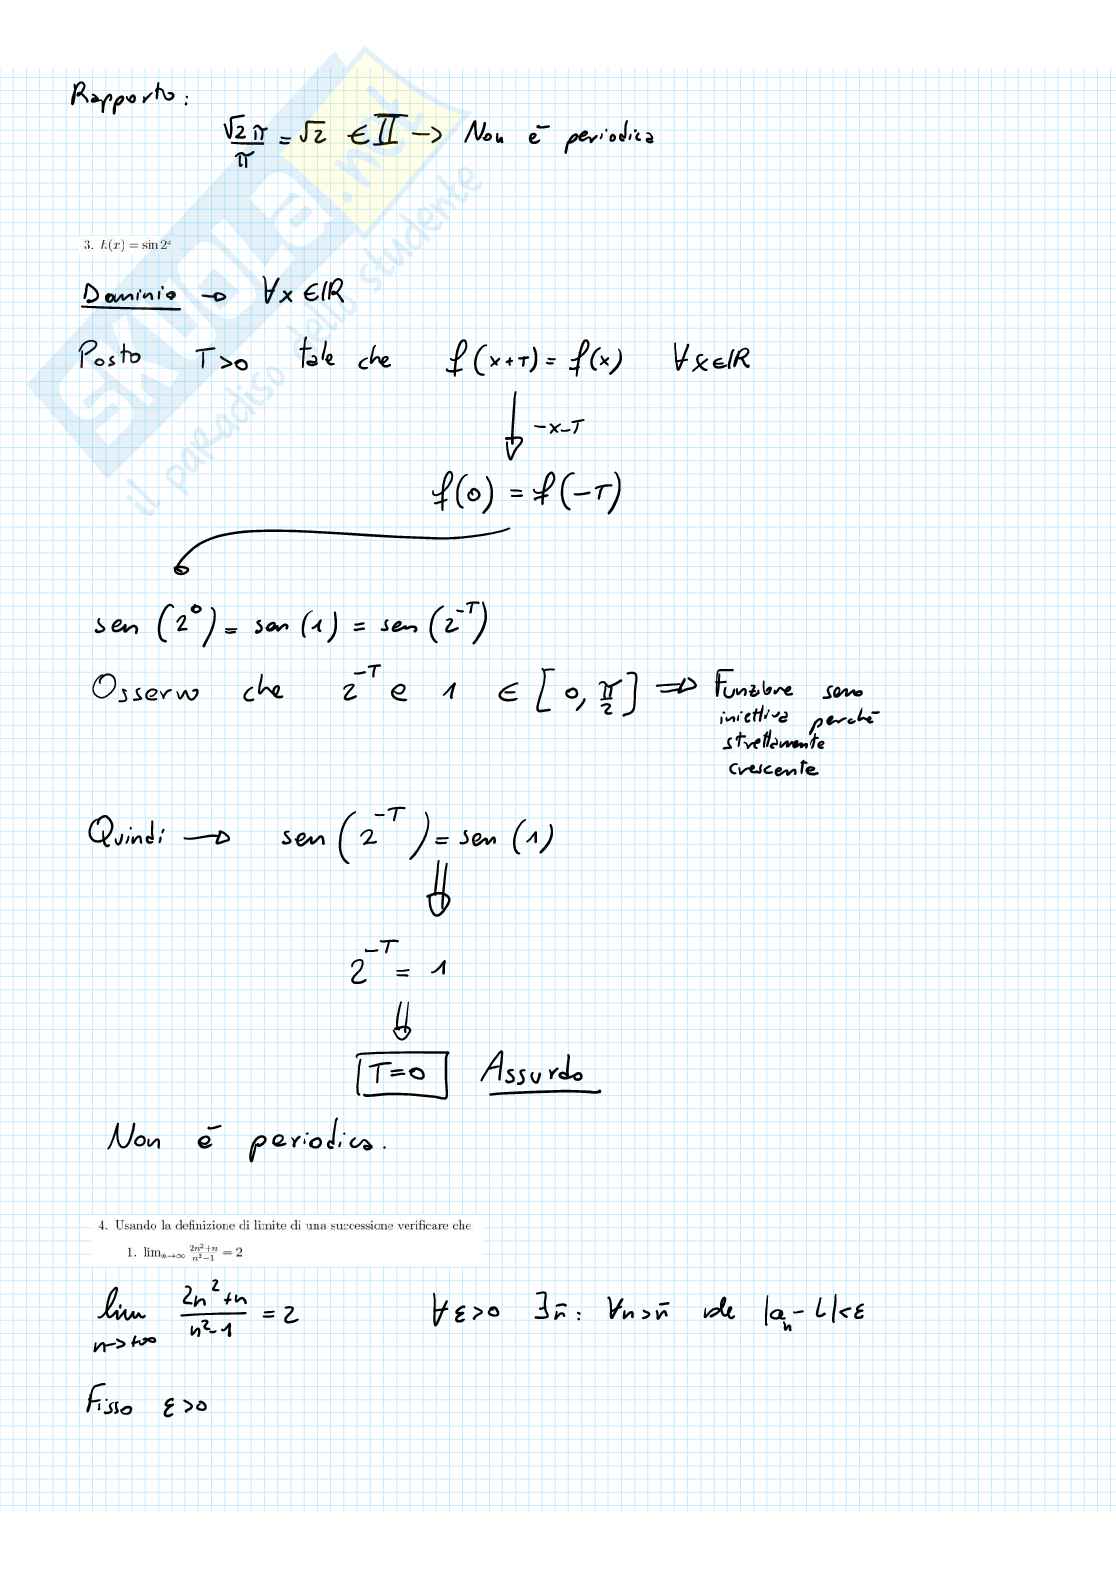 Rapporto:
√2 π / π = √2 ∈ II → Non è periodica
SKUOLA.net
il paradiso dello studente
3. h(x) = sin 2ˣ
Dominio → ∀x ∈ IR
Posto T>0 tale che f(x+T) = f(x) ∀x∈IR
-x-T
f(0) = f(-T)
sen (2⁰) = sen (1) = sen (2^-T)
Osservo che 2^-T e 1 ∈ [0, π/2] ⇒ Funzione seno
iniettiva perchè
strettamente
crescente
Quindi → sen (2^-T) = sen (1)
⇓
2^-T = 1
⇓
T=0 Assurdo
Non è periodica.
4. Usando la definizione di limite di una successione verificare che
1. lim n→∞ (2n²+n)/(n²−1) = 2
lim n→+∞ (2n²+n)/(n²-1) = 2 ∀ε>0 ∃n̄: ∀n>n̄ vale |aₙ - L|<ε
Fisso ε>0